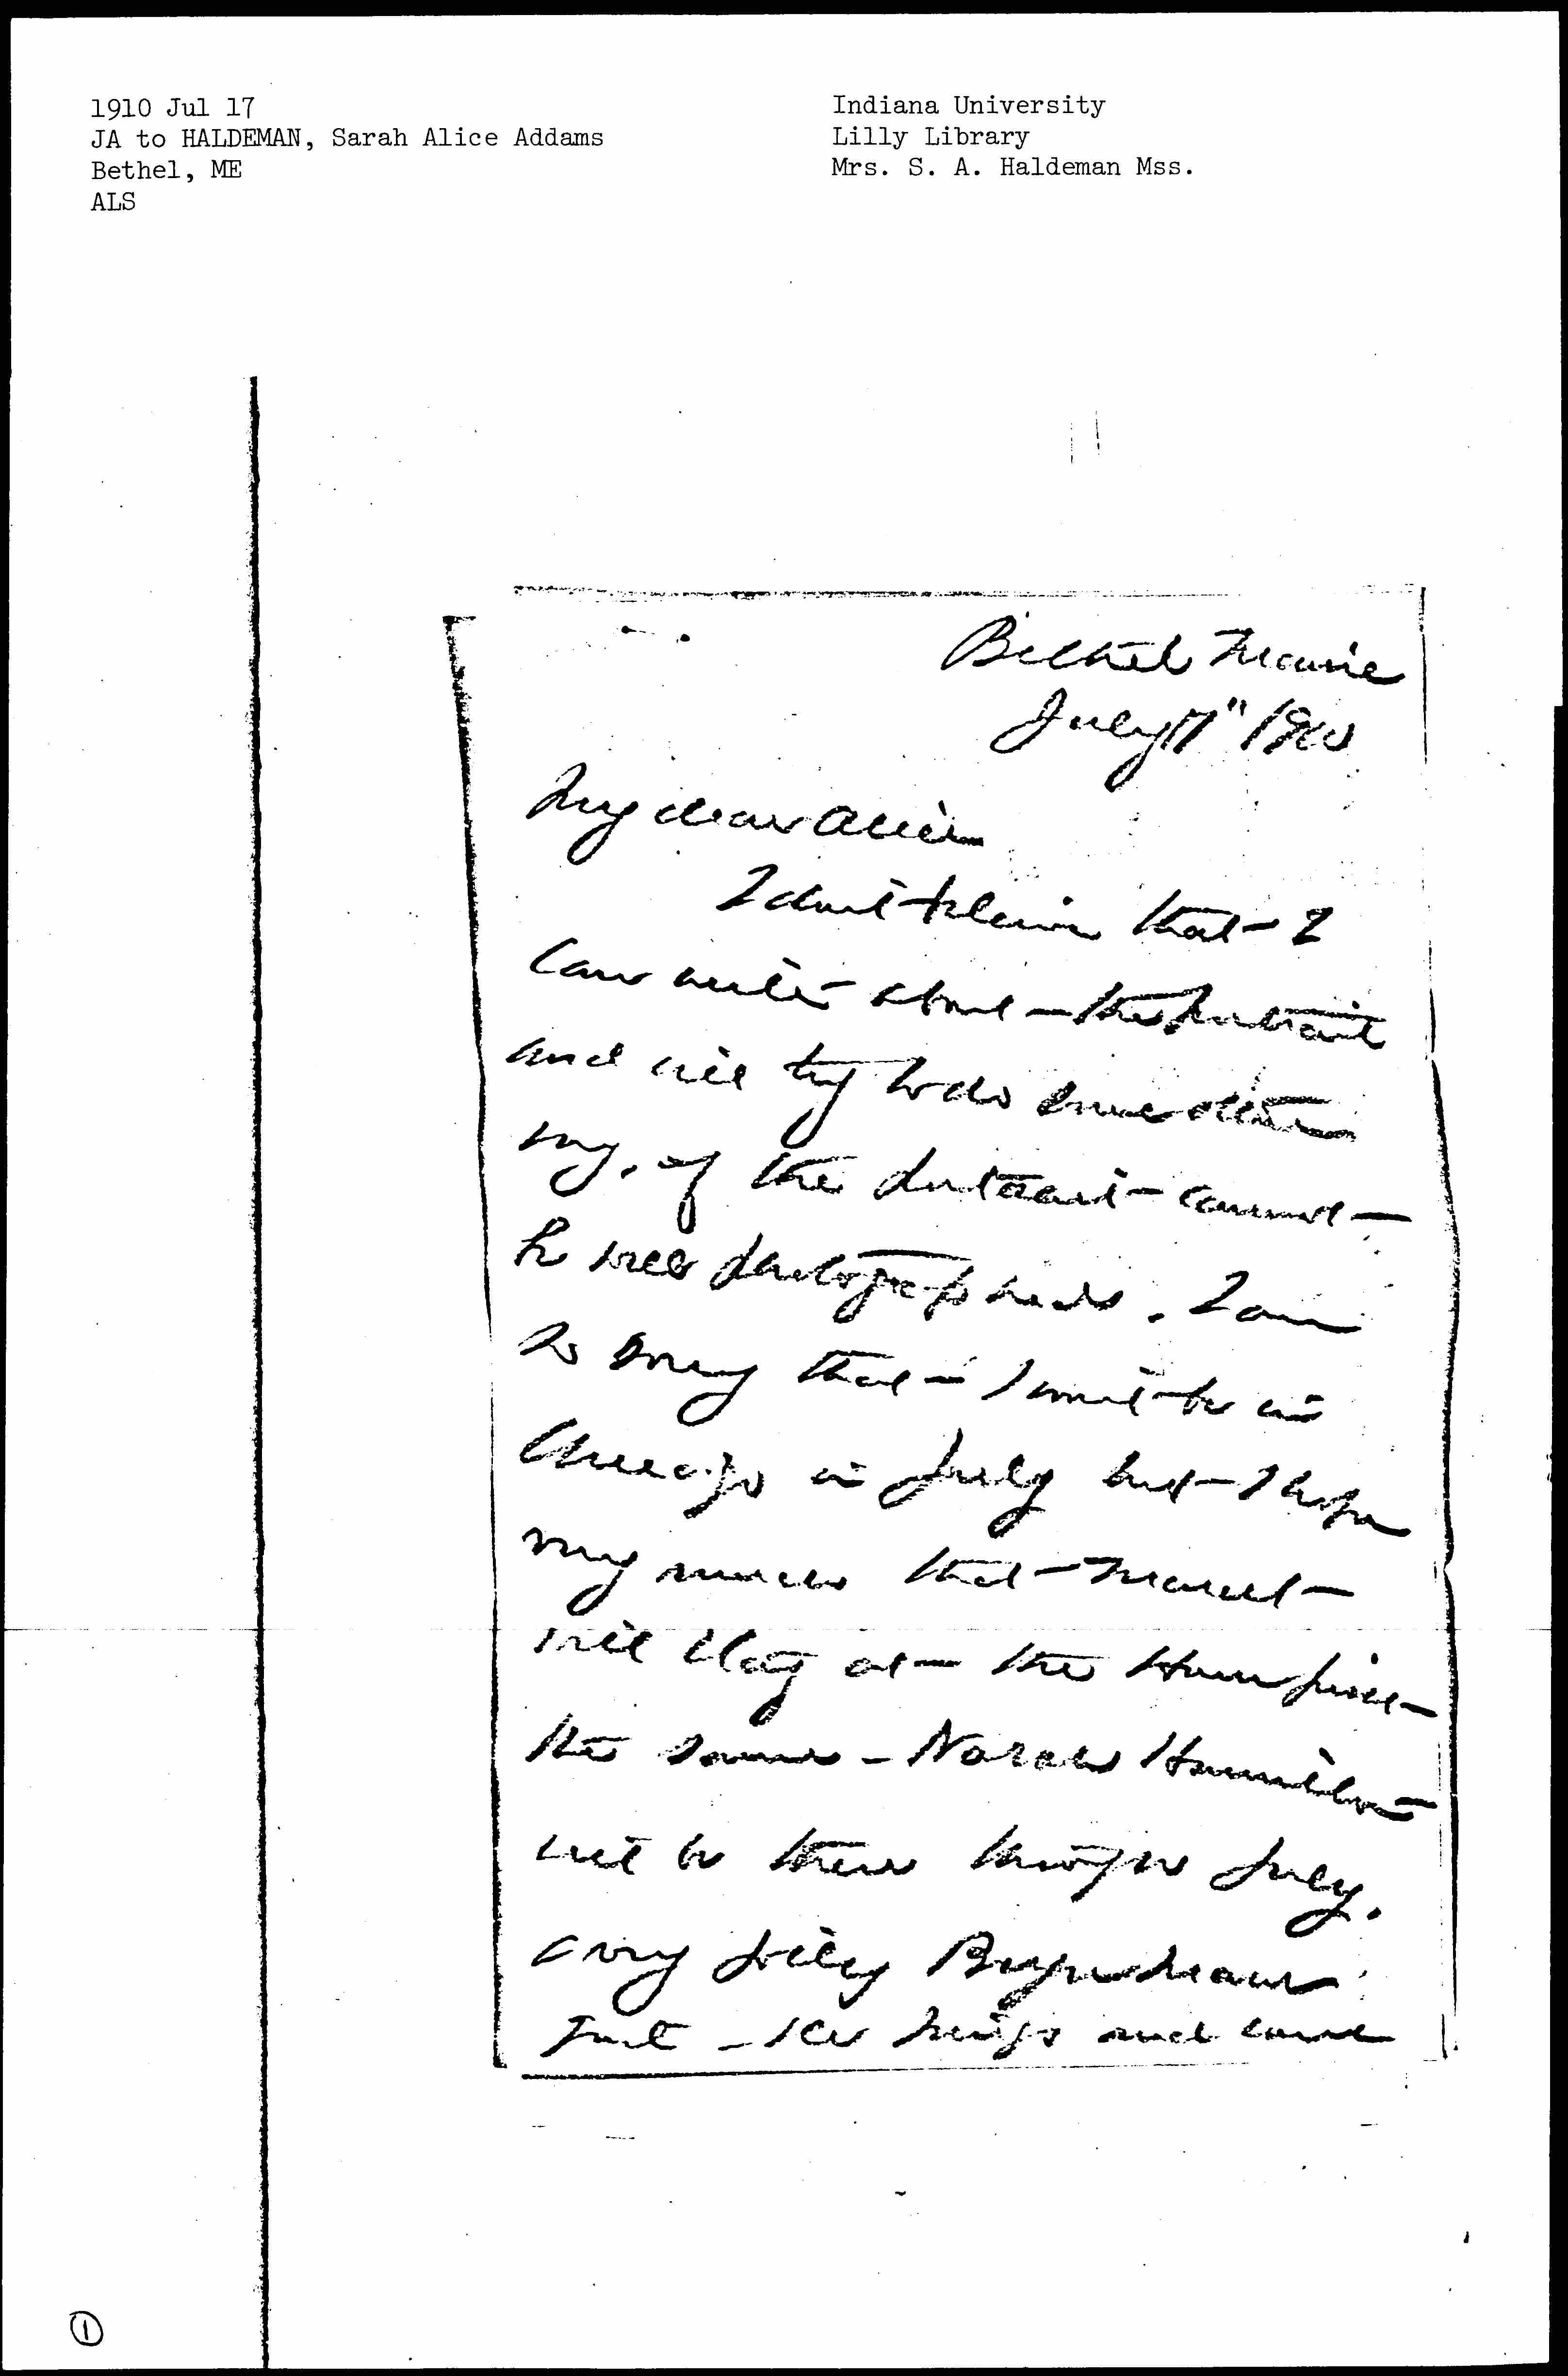 1910 Jul 17
JA to HALDEMAN, Sarah Alice Addams
Bethel, ME
ALS
Indiana University
Lilly Library
Mrs. S. A. Haldeman Mss.
Bethel Maine
July 17" 1910
My dear Alice
I don't that I
can write about the portrait
and will try to do some
if the portrait cannot
be well photographed. I am
so sorry that I won't be in
Chicago in July but I hope
very much that Marcet
will stay at the House just
the same - Norah Hamilton
will be there through July.
a very jolly Bryn Mawr
and some
①